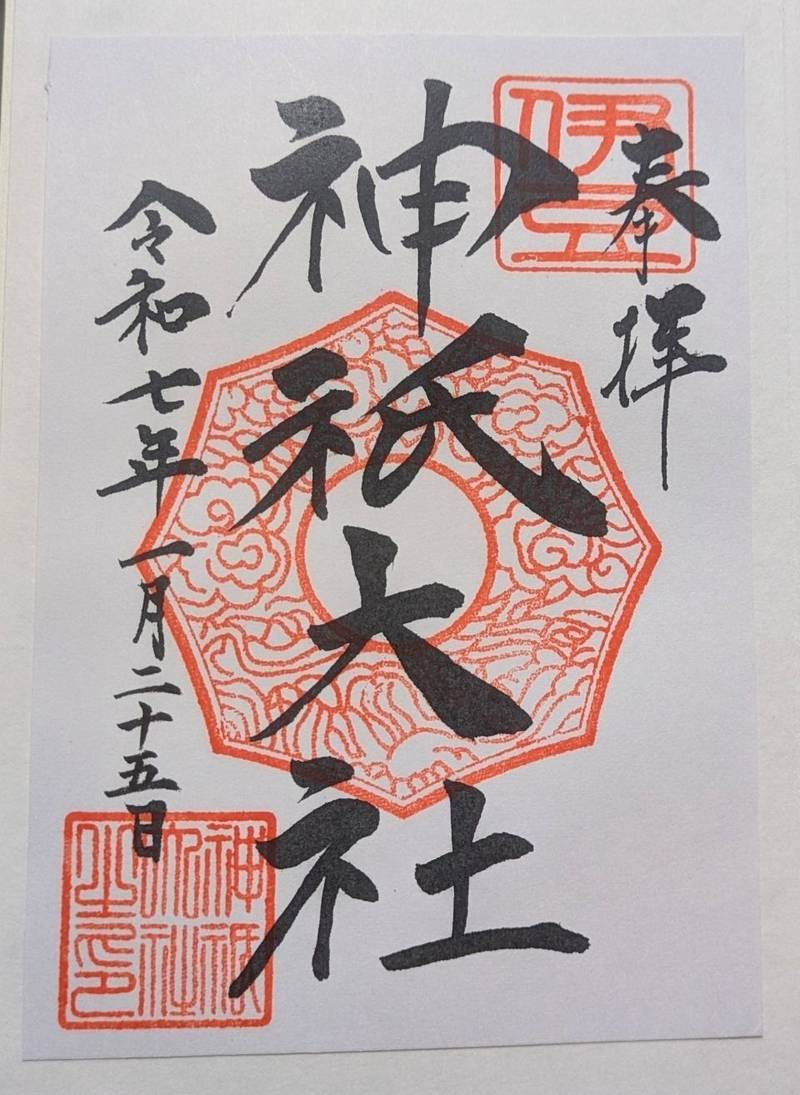 奉拝
伊豆
神祇大社
令和七年一月二十五日
神祇
大社
之印